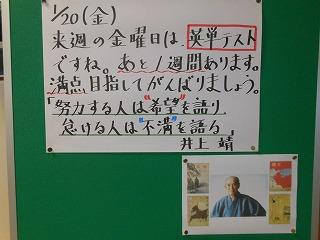 1/20(金)
来週の金曜日は、英単テスト
ですね。あと1週間あります。
満点目指してがんばりましょう。
「努力する人は"希望"を語り
怠ける人は"不満"を語る」
井上 靖